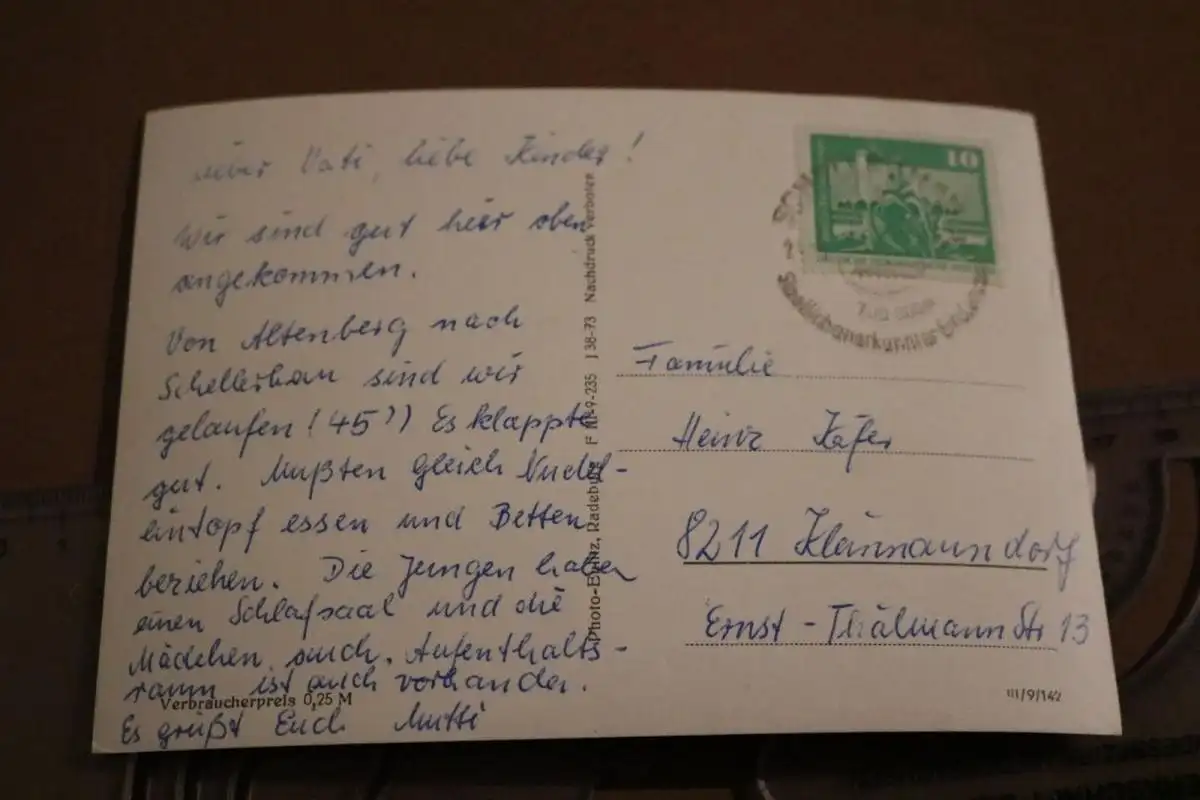 Lieber Vati, liebe Kinder!
Wir sind gut hier oben
angekommen.
Von Altenberg nach
Schellerhau sind wir
gelaufen! (45') Es klappte
gut. Mußten gleich Nudel-
eintopf essen und Betten
beziehen. Die Jungen haben
einen Schlafsaal und die
Mädchen auch. Aufenthalts-
raum ist auch vorhanden.
Es grüßt Euch Mutti
Verbraucherpreis 0,25 M
Radebeul F III-9-235 J 38-73 Nachdruck verboten
10
Familie
Heinz Käfer
8211 Kleinnaundorf
Ernst-Thälmann Str 13
III/9/142